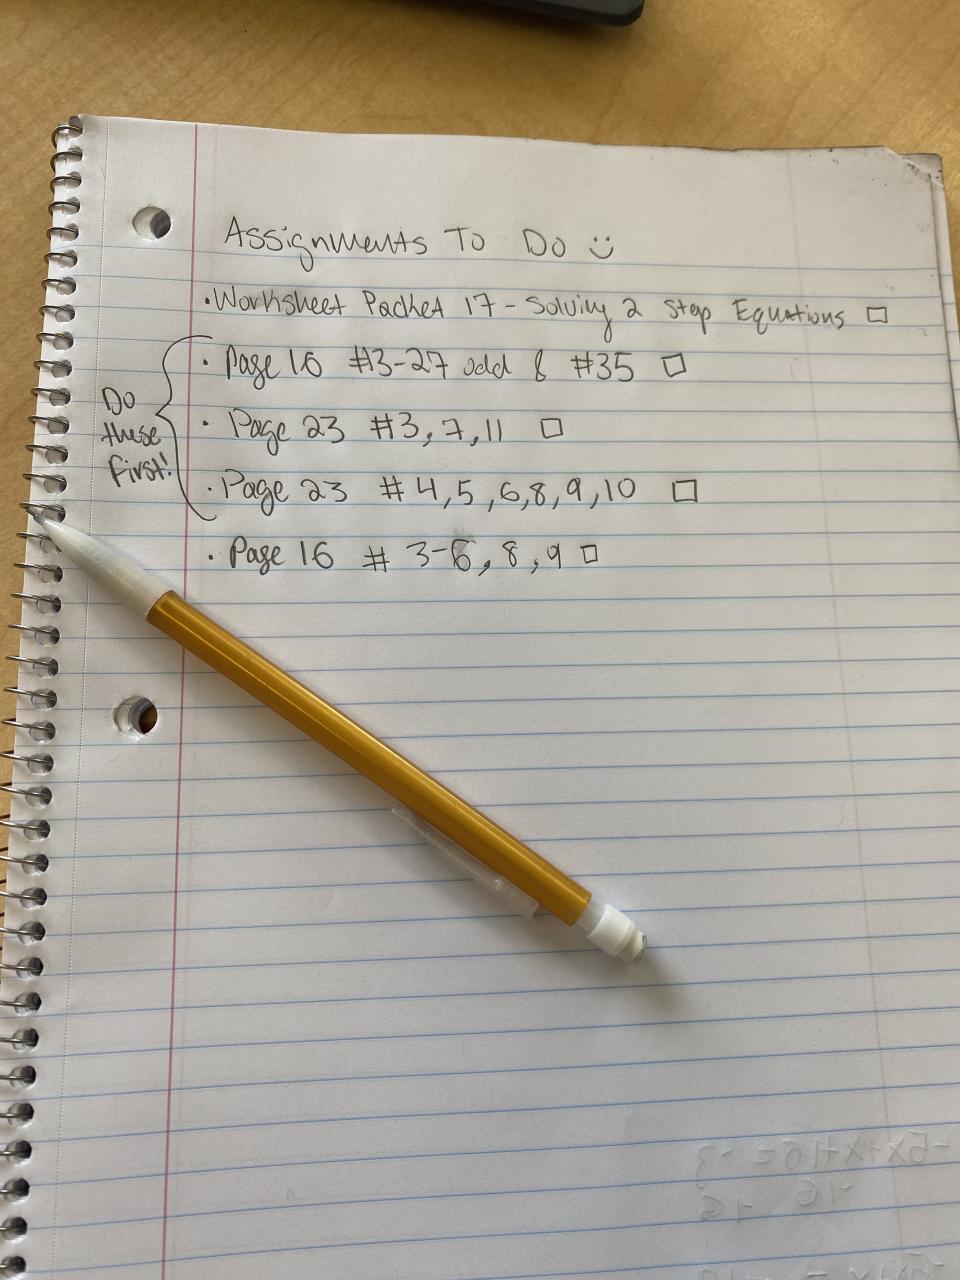 Assignments To Do :)
• Worksheet Packet 17 - Solving 2 Step Equations □
• Page 16 #3-27 odd & #35 □
Do these first!
• Page 23 #3, 7, 11 □
• Page 23 # 4, 5, 6, 8, 9, 10 □
• Page 16 # 3-6, 8, 9 □
-5x+x+16 = -3
-16 -16